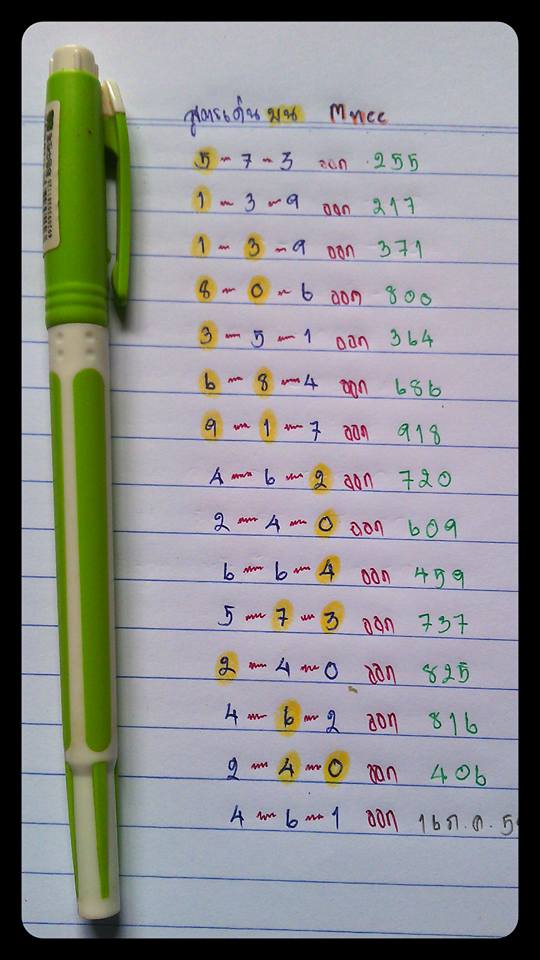 สูตรเด่น บน Mnec
5 - 7 - 3 ออก 255
1 - 3 - 9 ออก 217
1 - 3 - 9 ออก 371
8 - 0 - 6 ออก 800
3 - 5 - 1 ออก 364
6 - 8 - 4 ออก 686
9 - 1 - 7 ออก 918
4 - 6 - 2 ออก 720
2 - 4 - 0 ออก 609
6 - 6 - 4 ออก 459
5 - 7 - 3 ออก 737
2 - 4 - 0 ออก 825
4 - 6 - 2 ออก 816
2 - 4 - 0 ออก 406
4 - 6 - 1 ออก 16ก.ค.5